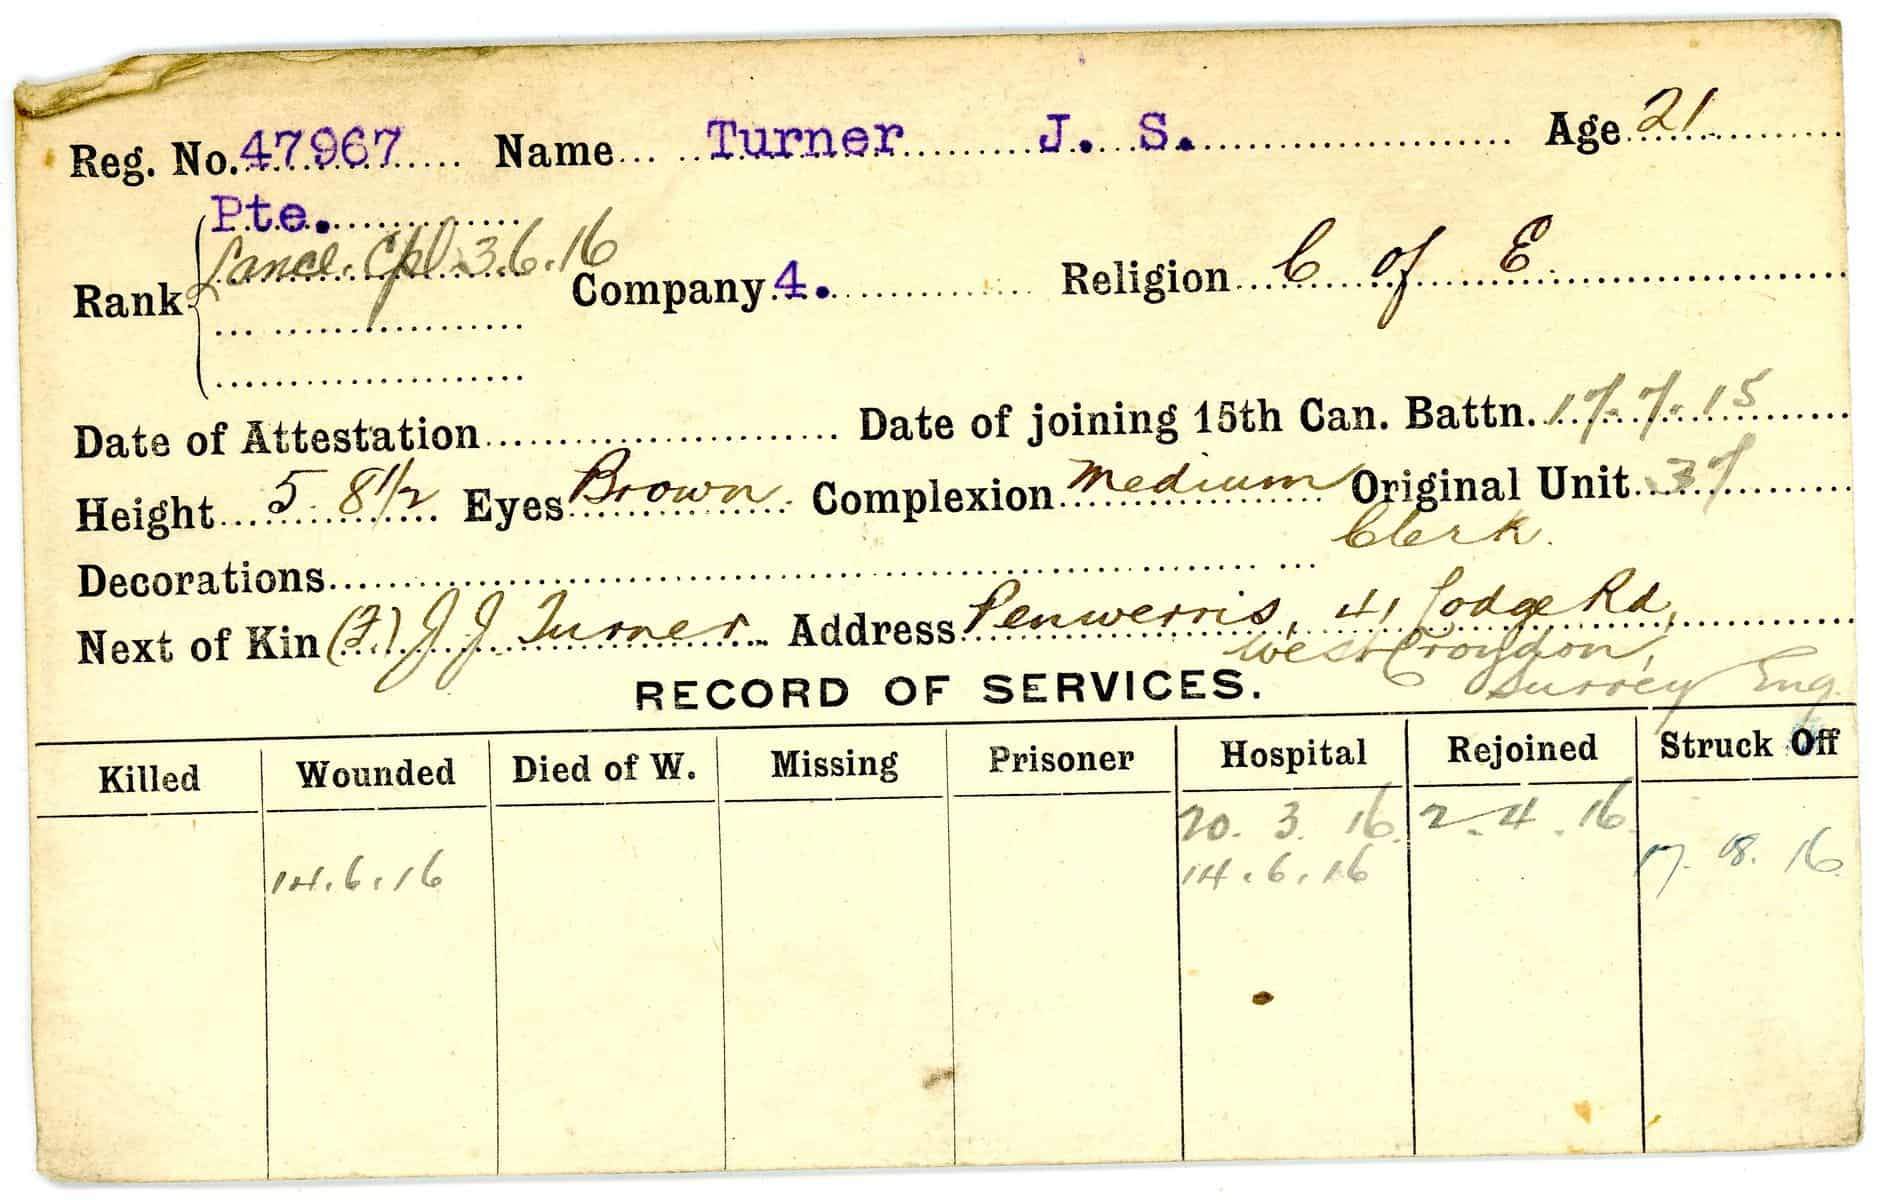 Reg. No. 47967 Name Turner J. S. Age 21
Pte.
Lance. Cpl 3.6.16
Rank Company 4. Religion C of E
Date of Attestation Date of joining 15th Can. Battn. 17.7.15
Height 5 8 1/2 Eyes Brown Complexion Medium Original Unit 37
Clerk.
Decorations
Next of Kin (F) J J Turner Address Penwerris, 41 Lodge Rd,
West Croydon,
Surrey Eng.
RECORD OF SERVICES.
Killed Wounded Died of W. Missing Prisoner Hospital Rejoined Struck Off
20. 3. 16 2. 4. 16
14.6.16 14.6.16 17. 8. 16